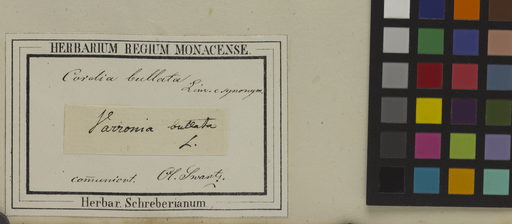 HERBARIUM REGIUM MONACENSE.
Cordia bullata
Linn. c. synonym.
Varronia bullata
L.
com̄unicvt. Ol. Swartz.
Herbar. Schreberianum.